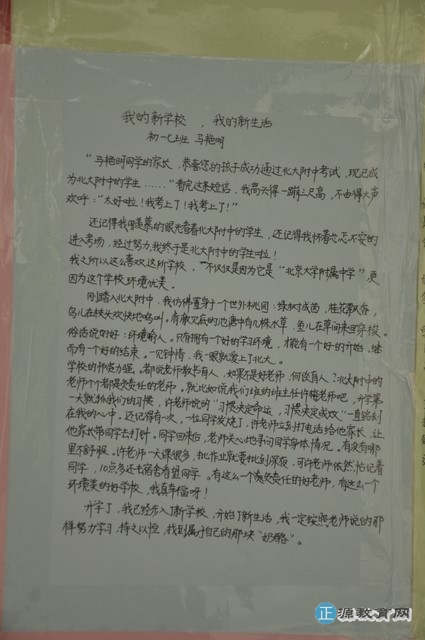 我的新学校,我的新生活
初一七班 马艳明
“马艳明同学的家长,恭喜您的孩子成功通过北大附中考试,现已成
为北大附中的学生……”看完这条短信,我高兴得一蹦三尺高,不由得大声
欢呼:“太好啦!我考上了!我考上了!”
还记得我用羡慕的眼光看着北大附中的学生,还记得我怀着忐忑不安的
进入考场,经过努力,我终于是北大附中的学生啦!
我之所以这么喜欢这所学校,不仅仅是因为它是“北京大学附属中学”更
因为这个学校环境优美。
刚踏入北大附中,我仿佛置身于一个世外桃园:绿树成茵,桂花飘香,
鸟儿在枝头欢快地鸣叫。有清澈见底的池塘中有几株水草,鱼儿在草间来回穿梭。
俗话说的好:环境育人。只有拥有一个好的学习环境,才能有一个好的开始,继
而有一个好的结束。一见钟情,我一眼就爱上了北大。
学校的师资力量。都说老师教书育人,如果不是好老师,何谈育人?北大附中的
老师个个都是负责任的老师。就比如说我们班的班主任许老师吧,开学第
一天就抓我们的习惯,许老师说的“习惯决定命运,习惯决定成败”一直铭刻
在我的心中。还记得有一次,一位同学发烧了,许老师立刻打电话给他家长,让
他家长带同学去打针。同学回来后,老师关心地寻问同学身体情况。有没有哪
里不舒服。许老师一天课很多,批作业就要批到深夜,可许老师依然惦记着
同学,10点多还去宿舍看望同学。有这么一个负责任的好老师,有这么一个
环境美的好学校,我真幸福呀!
开学了,我已经步入了新学校,开始了新生活,我一定按照老师说的那
样努力学习,持之以恒,找到属于自己的那块“奶酪”。
正源教育网